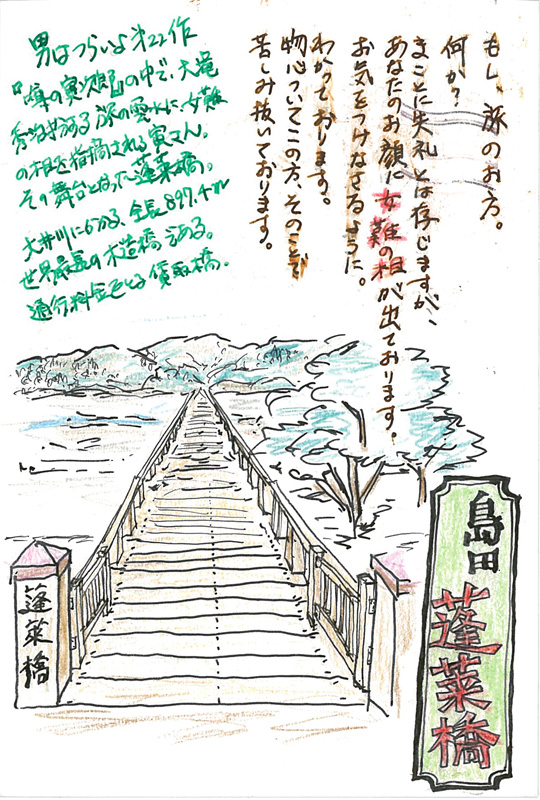 もし、旅のお方。
何か?
まことに失礼とは存じますが、
あなたのお顔に女難の相が出ております。
お気をつけなさるように。
わかっております。
物心ついてこの方、そのことで
苦しみ抜いております。
男はつらいよ第22作
『噂の寅次郎』の中で、大滝
秀治扮する旅の雲水に、女難
の相を指摘される寅さん。
その舞台となった蓬莱橋。
大井川にかかる、全長897.4m
世界最長の木造橋である。
通行料金をとる賃取橋。
蓬莱橋
島田
蓬莱橋